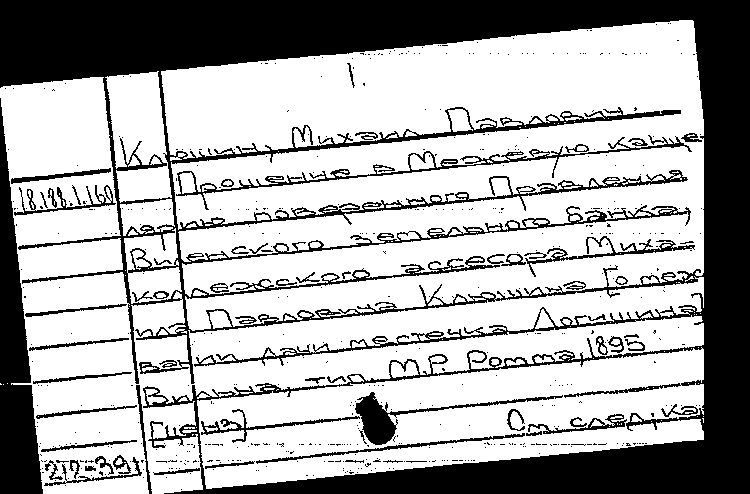 1.
Клюшин, Михаил Павлович.
18.188.1.160
Прошение в Межевую канце-
лярию поверенного Правления
Виленского земельного банка,
коллежского ассесора Миха-
ила Павловича Клюшина [о меж
вании дачи местечка Логишина]
Вильна, тип. М.Р. Ромма, 1895
[цена]
См. след. ка
212-391